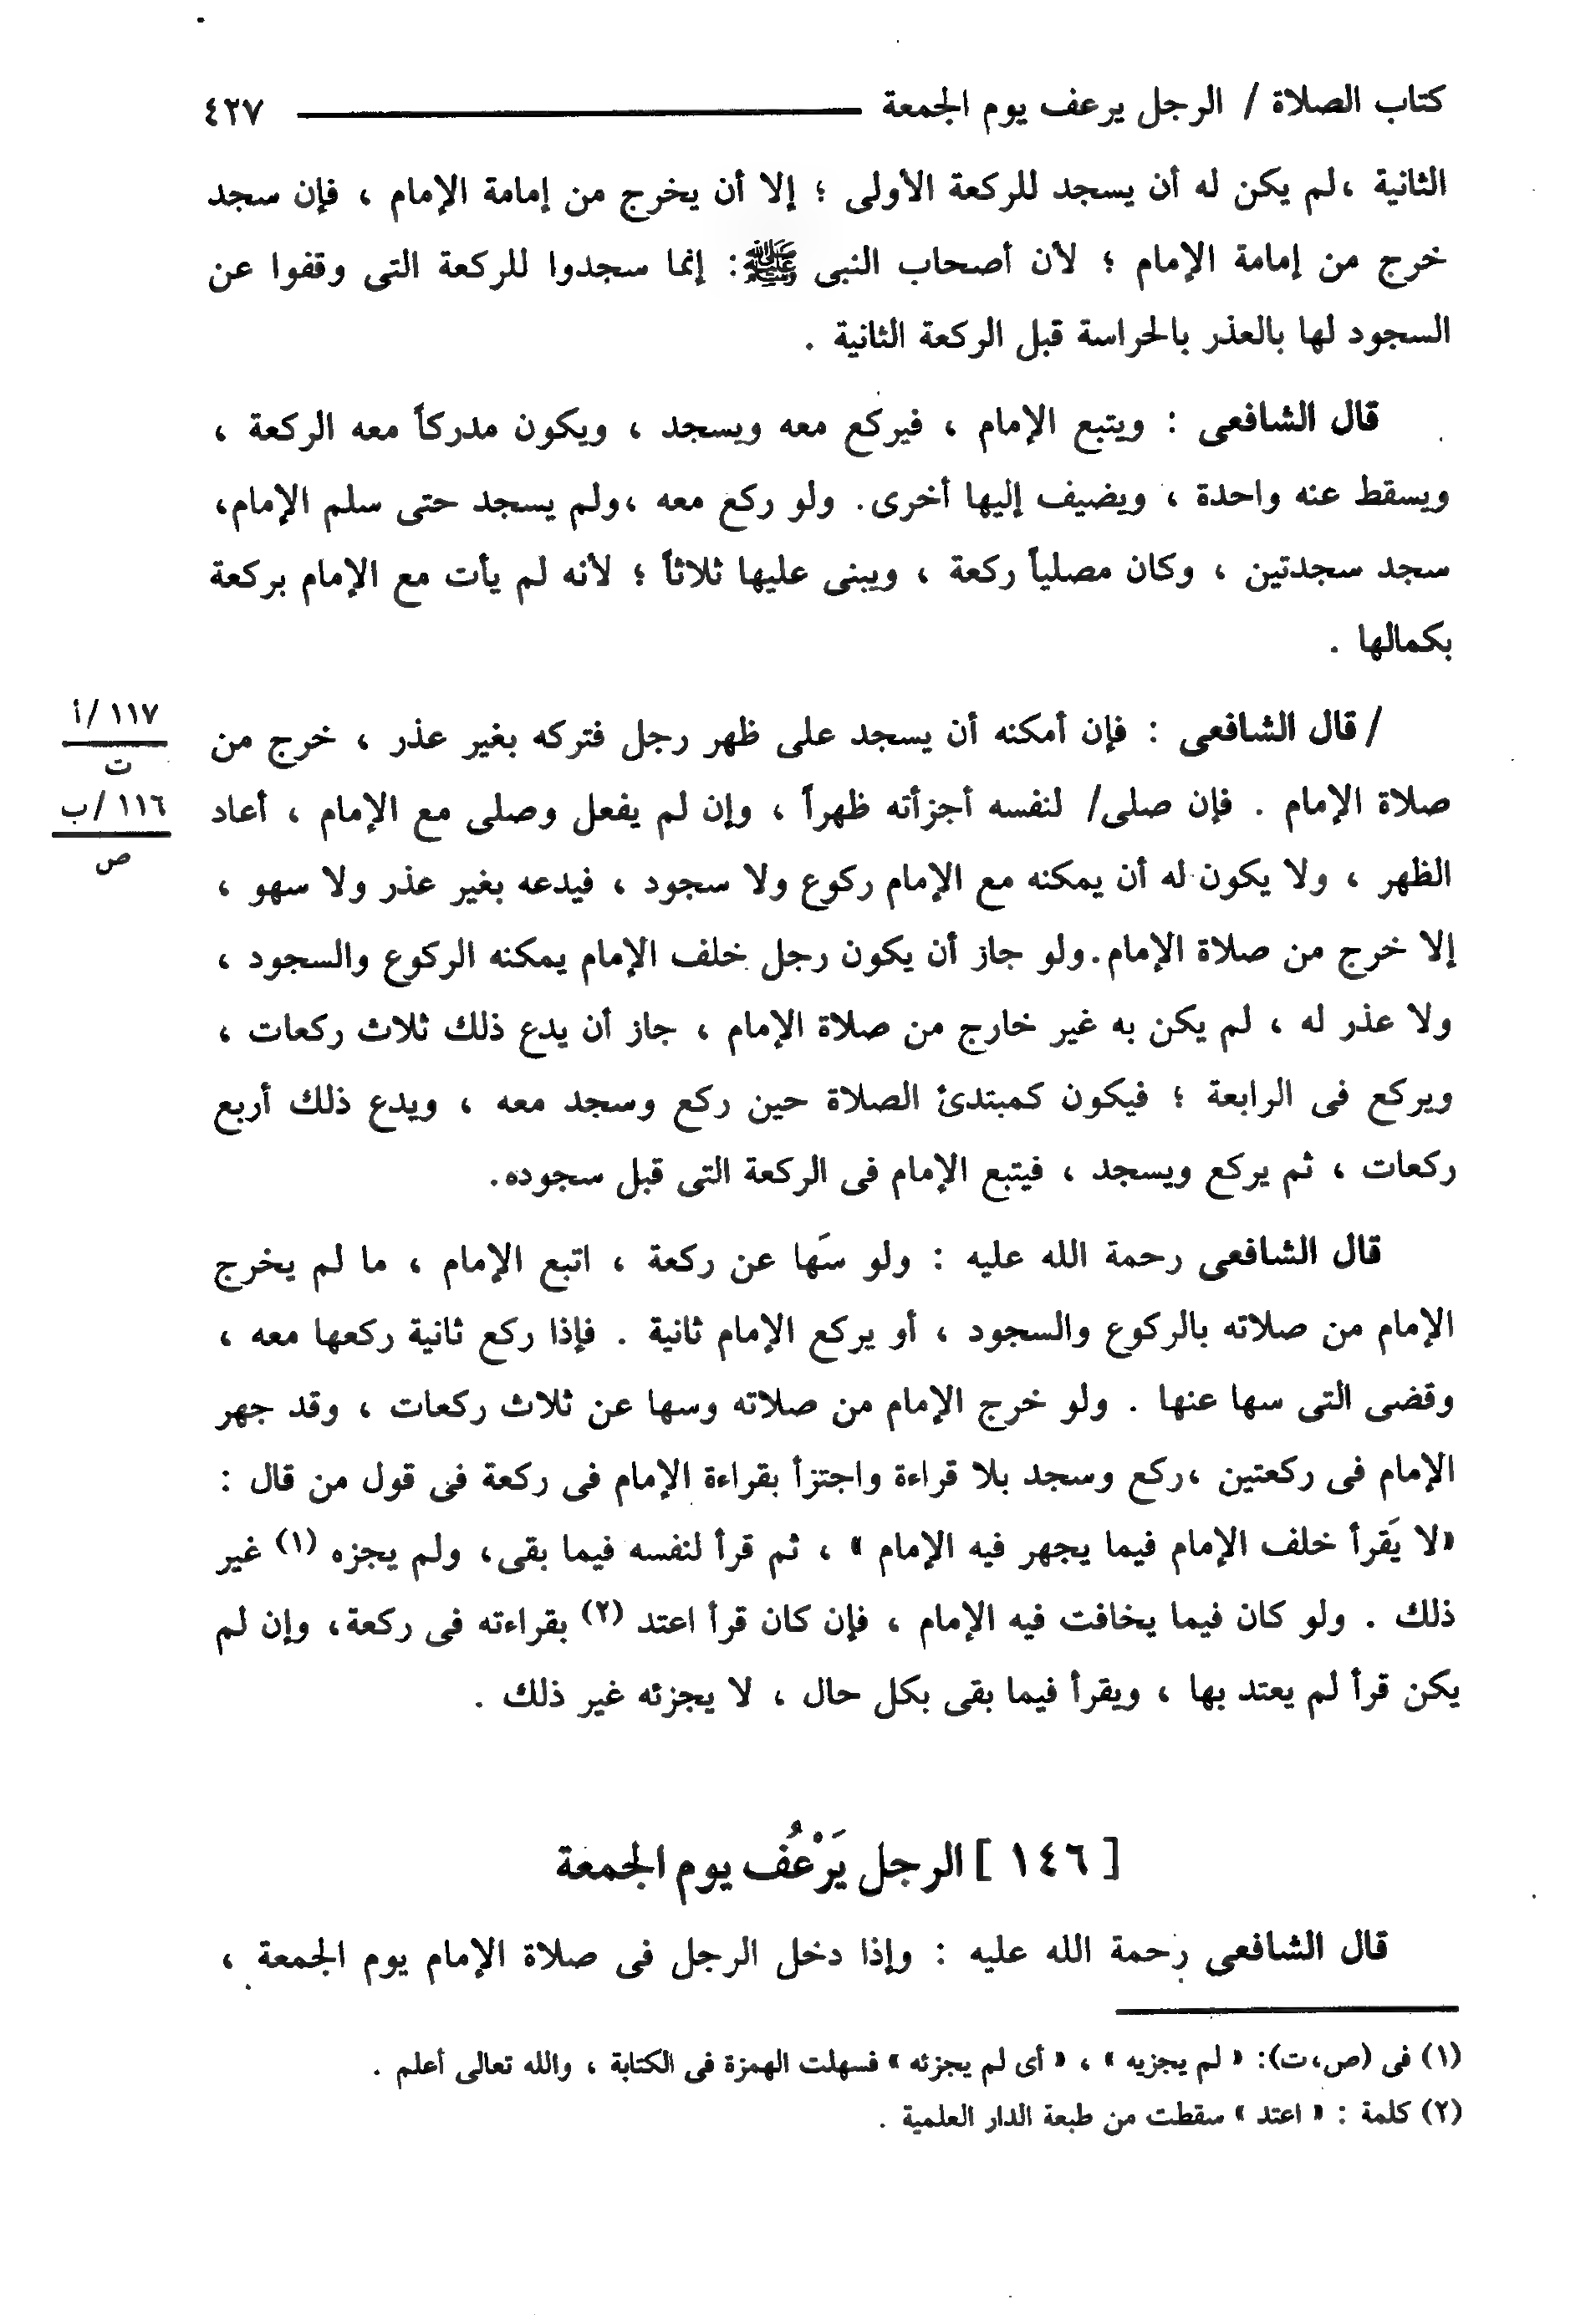 كتاب الصلاة / الرجل يرعف يوم الجمعة ٤٢٧
الثانية ،لم يكن له أن يسجد للركعة الأولى ؛ إلا أن يخرج من إمامة الإمام ، فإن سجد
خرج من إمامة الإمام ؛ لأن أصحاب النبى ﷺ: إنما سجدوا للركعة التى وقفوا عن
السجود لها بالعذر بالحراسة قبل الركعة الثانية .
قال الشافعى : ويتبع الإمام ، فيركع معه ويسجد ، ويكون مدركاً معه الركعة ،
ويسقط عنه واحدة ، ويضيف إليها أخرى. ولو ركع معه ،ولم يسجد حتى سلم الإمام،
سجد سجدتين ، وكان مصلياً ركعة ، ويبنى عليها ثلاثاً ؛ لأنه لم يأت مع الإمام بركعة
بكمالها .
/ قال الشافعى : فإن أمكنه أن يسجد على ظهر رجل فتركه بغير عذر ، خرج من
صلاة الإمام . فإن صلى/ لنفسه أجزأته ظهراً ، وإن لم يفعل وصلى مع الإمام ، أعاد
الظهر ، ولا يكون له أن يمكنه مع الإمام ركوع ولا سجود ، فيدعه بغير عذر ولا سهو ،
إلا خرج من صلاة الإمام.ولو جاز أن يكون رجل خلف الإمام يمكنه الركوع والسجود ،
ولا عذر له ، لم يكن به غير خارج من صلاة الإمام ، جاز أن يدع ذلك ثلاث ركعات ،
ويركع فى الرابعة ؛ فيكون كمبتدئ الصلاة حين ركع وسجد معه ، ويدع ذلك أربع
ركعات ، ثم يركع ويسجد ، فيتبع الإمام فى الركعة التى قبل سجوده.
قال الشافعى رحمة الله عليه : ولو سَها عن ركعة ، اتبع الإمام ، ما لم يخرج
الإمام من صلاته بالركوع والسجود ، أو يركع الإمام ثانية . فإذا ركع ثانية ركعها معه ،
وقضى التى سها عنها . ولو خرج الإمام من صلاته وسها عن ثلاث ركعات ، وقد جهر
الإمام فى ركعتين ،ركع وسجد بلا قراءة واجتزأ بقراءة الإمام فى ركعة فى قول من قال :
«لا يَقرأ خلف الإمام فيما يجهر فيه الإمام » ، ثم قرأ لنفسه فيما بقى، ولم يجزه (١) غير
ذلك . ولو كان فيما يخافت فيه الإمام ، فإن كان قرأ اعتد (٢) بقراءته فى ركعة، وإن لم
يكن قرأ لم يعتد بها ، ويقرأ فيما بقى بكل حال ، لا يجزئه غير ذلك .
١١٧ /أ
ت
١١٦ /ب
ص
[ ١٤٦ ] الرجل يَرْعُف يوم الجمعة
قال الشافعى رحمة الله عليه : وإذا دخل الرجل فى صلاة الإمام يوم الجمعة ،
(١) فى (ص،ت): « لم يجزيه » ، « أى لم يجزئه » فسهلت الهمزة فى الكتابة ، والله تعالى أعلم .
(٢) كلمة : « اعتد » سقطت من طبعة الدار العلمية .